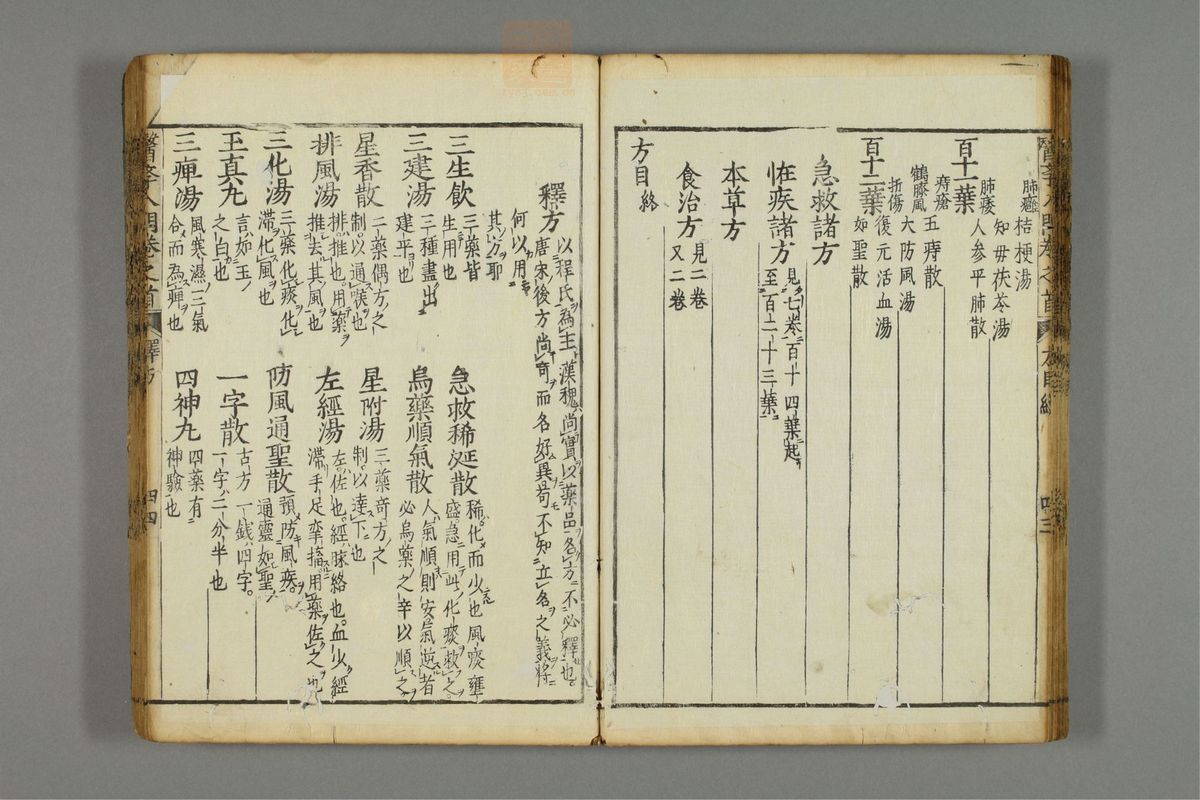 肺癰 桔梗湯
知毋茯苓湯
肺痿 人参平肺散
百十一葉
痔瘡 五痔散
鶴膝風 大防風湯
折傷 復元活血湯
百十二葉 如聖散
急救諸方
恠疾諸方 見七卷百十四葉起
至百二十三葉
本草方
食治方 見二卷
又二卷
方目終
四三
釋方 以程氏為主漢魏尚實以藥品名方不必釋也
唐宋後方尚奇而名好異苟不知立名之義將
何以用
其方耶
三生飲 三藥皆
生用也
急救稀涎散 稀化而少也風痰壅
盛急用此化痰救之
三建湯 三種盡出
建平也
烏藥順氣散 人氣順則安氣逆者
必烏藥之辛以順之
星香散 二藥偶方之
制以通喉也
星附湯 三藥奇方之
制以達下也
排風湯 排推也用藥
推去其風也
左經湯 左佐也經脉絡也血少經
滯手足挛搐用藥佐之也
三化湯 三藥化痰化
滞化風也
防風通聖散 預防風疾
通靈如聖
玉真丸 言如玉
之白也
一字散 古方一錢四字
一字二分半也
三痹湯 風寒濕三氣
合而為痹也
四神丸 四藥有
神驗也
醫學入門卷之首 釋方
四四